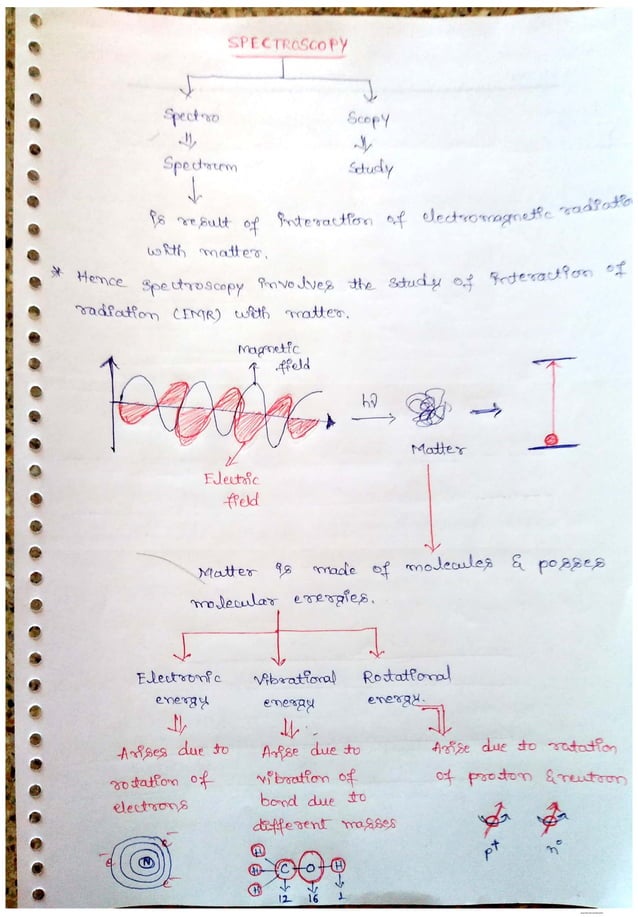 SPECTROSCOPY
Spectro
Scopy
Spectrum
Study
is result of interaction of electromagnetic radiation
with matter.
* Hence spectroscopy involves the study of interaction of
radiation (EMR) with matter.
Magnetic
field
hν
Matter
Electric
field
Matter is made of molecules & posses
molecular energies.
Electronic
energy
Vibrational
energy
Rotational
energy.
Arises due to
rotation of
electrons
Arise due to
vibration of
bond due to
different masses
Arise due to rotation
of proton & neutron
p+
n°
e-
e-
e-
N
H
H
H
C
O
H
12
16
1